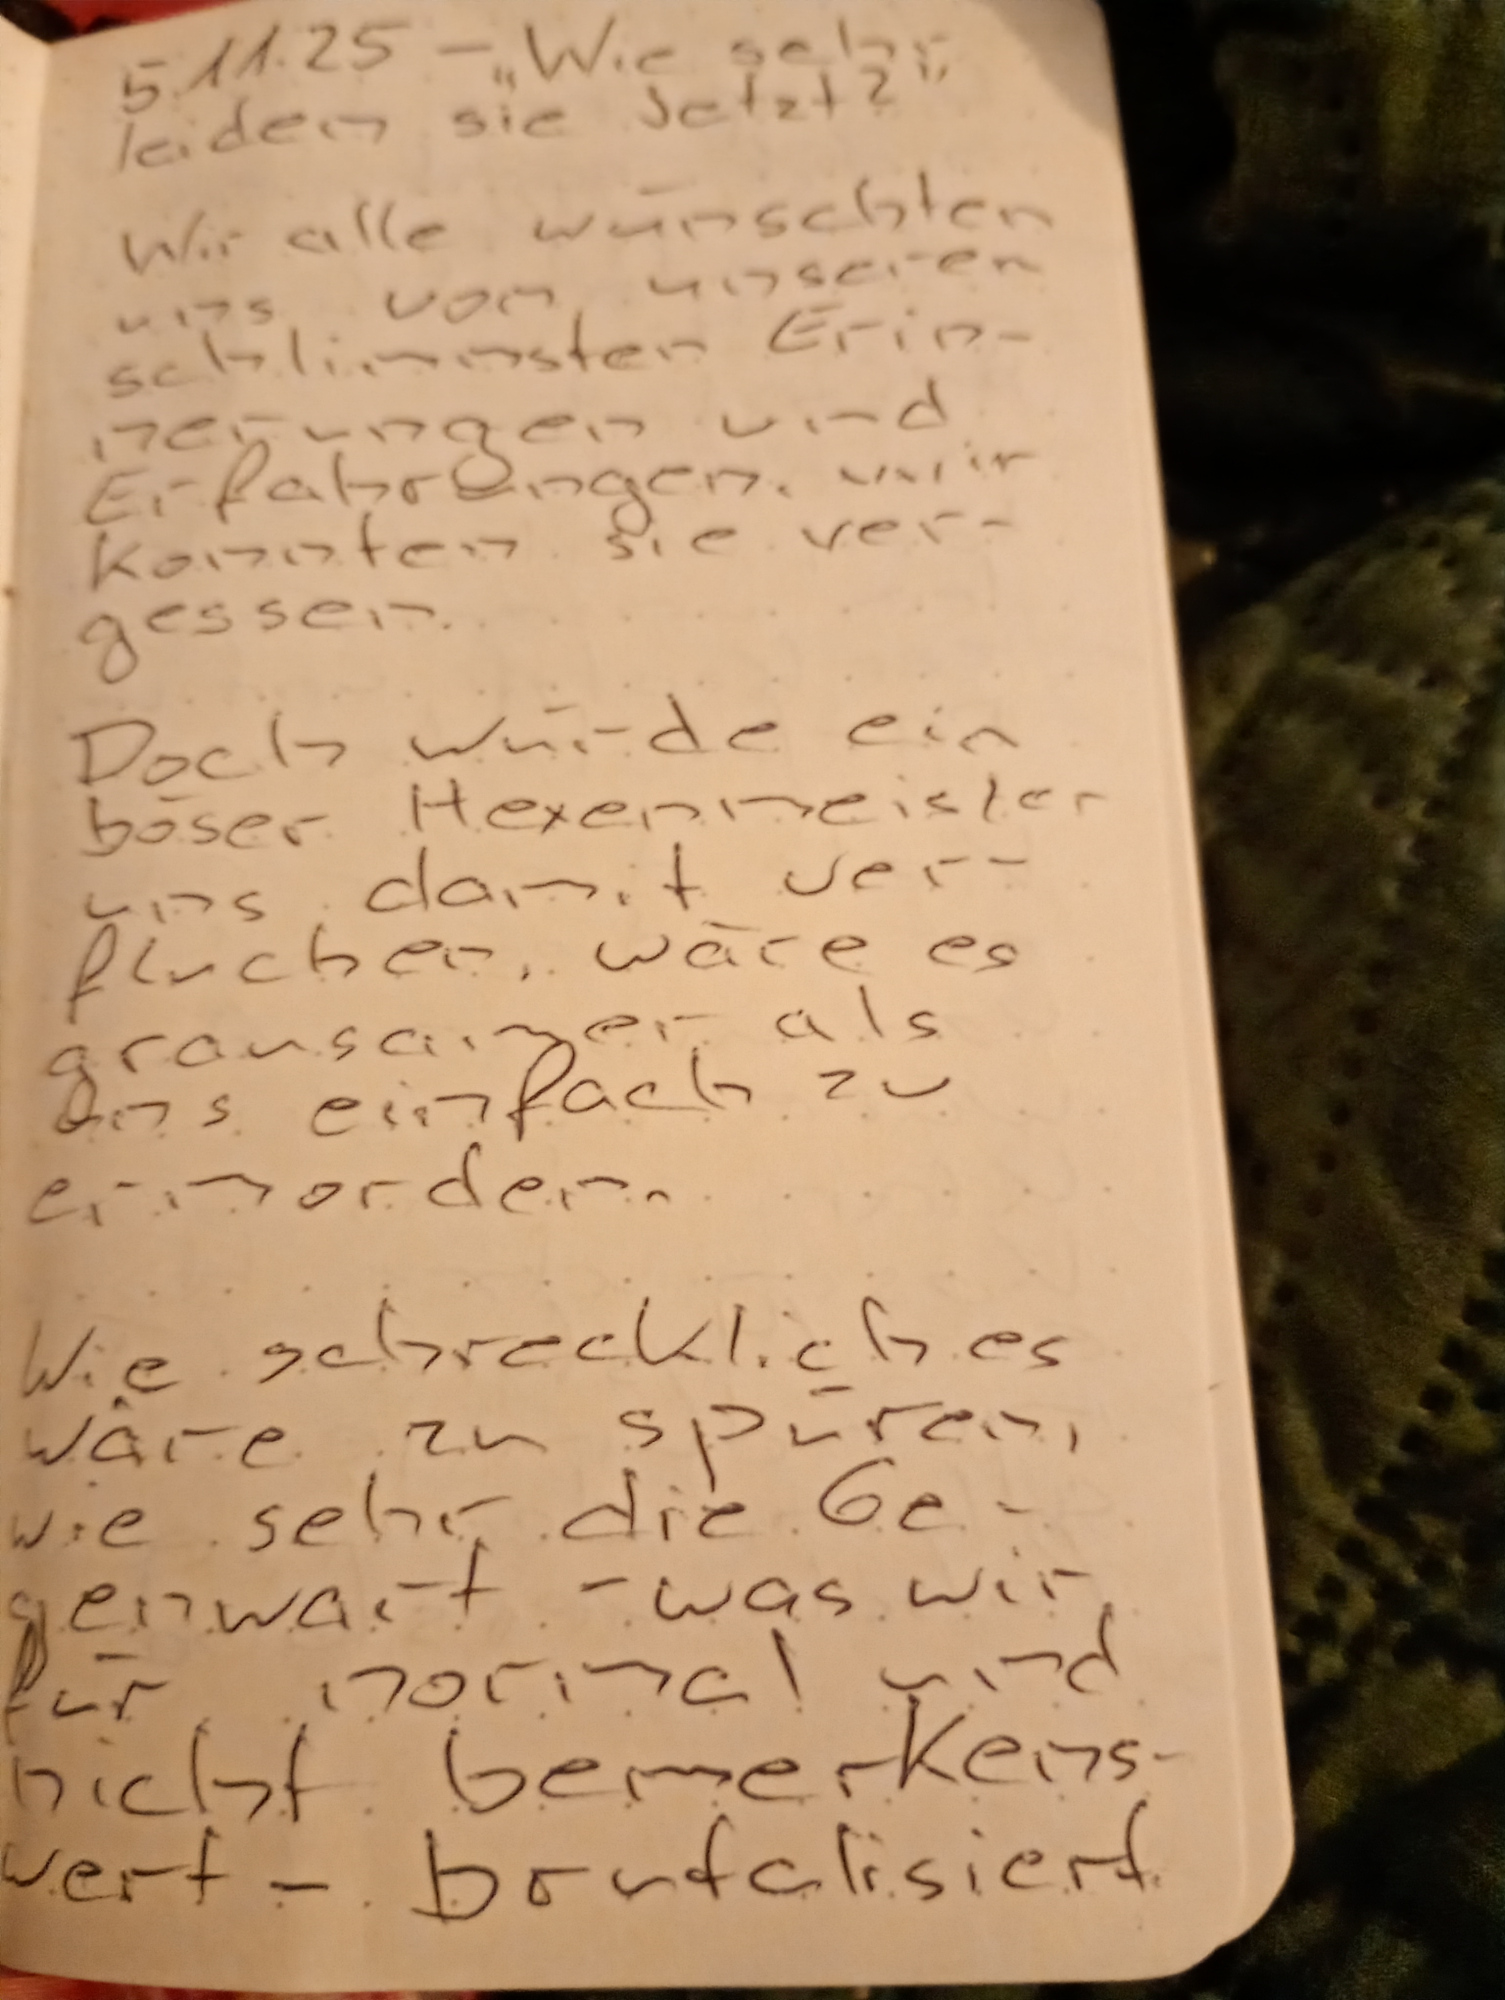 5.11.25 – „Wie sehr
leiden sie Jetzt?"
Wir alle wünschten
uns von unseren
schlimmsten Erin-
nerungen und
Erfahrungen, wir
konnten sie ver-
gessen.
Doch würde ein
böser Hexenmeister
uns damit ver-
fluchen, wäre es
grausamer als
uns einfach zu
ermorden.
Wie schrecklich es
wäre zu spüren,
wie sehr die Ge-
genwart – was wir
für normal und
nicht bemerkens-
wert – brutalisiert